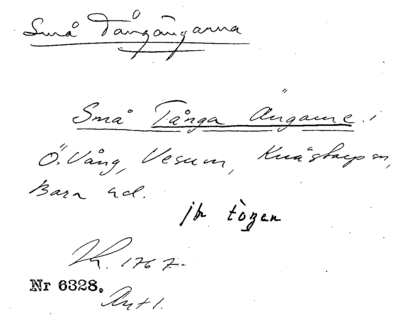 Små Tångängarna
Små Tånga Ängarne i
Ö. Vång, Vesum, Knästorp sn,
Bara hd.
jfr tözen
Kr. 1767.
Nr 6328.
Ant 1.